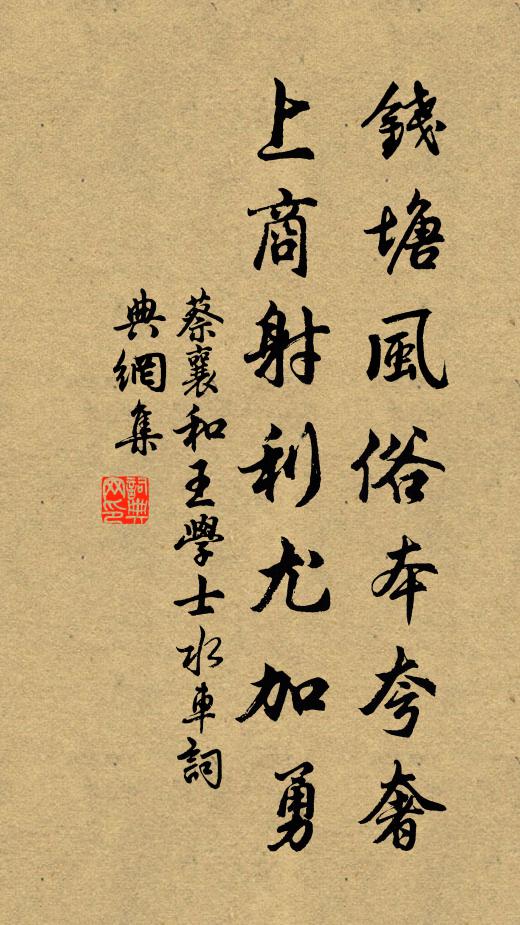 錢塘風俗本夸奢
上商射利尤加勇
蔡襄和王學士水車詞
典網集
詞典網印